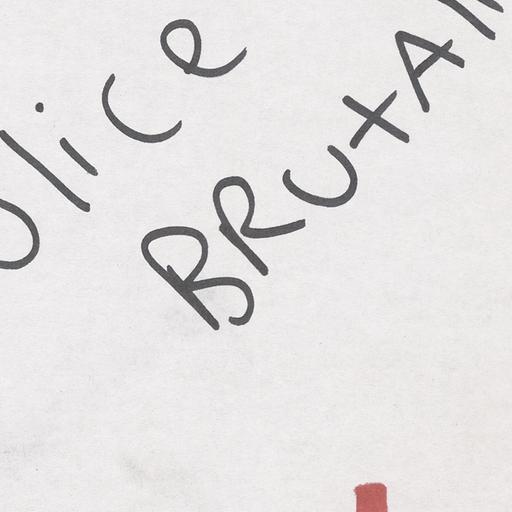 olice
BRUtAl